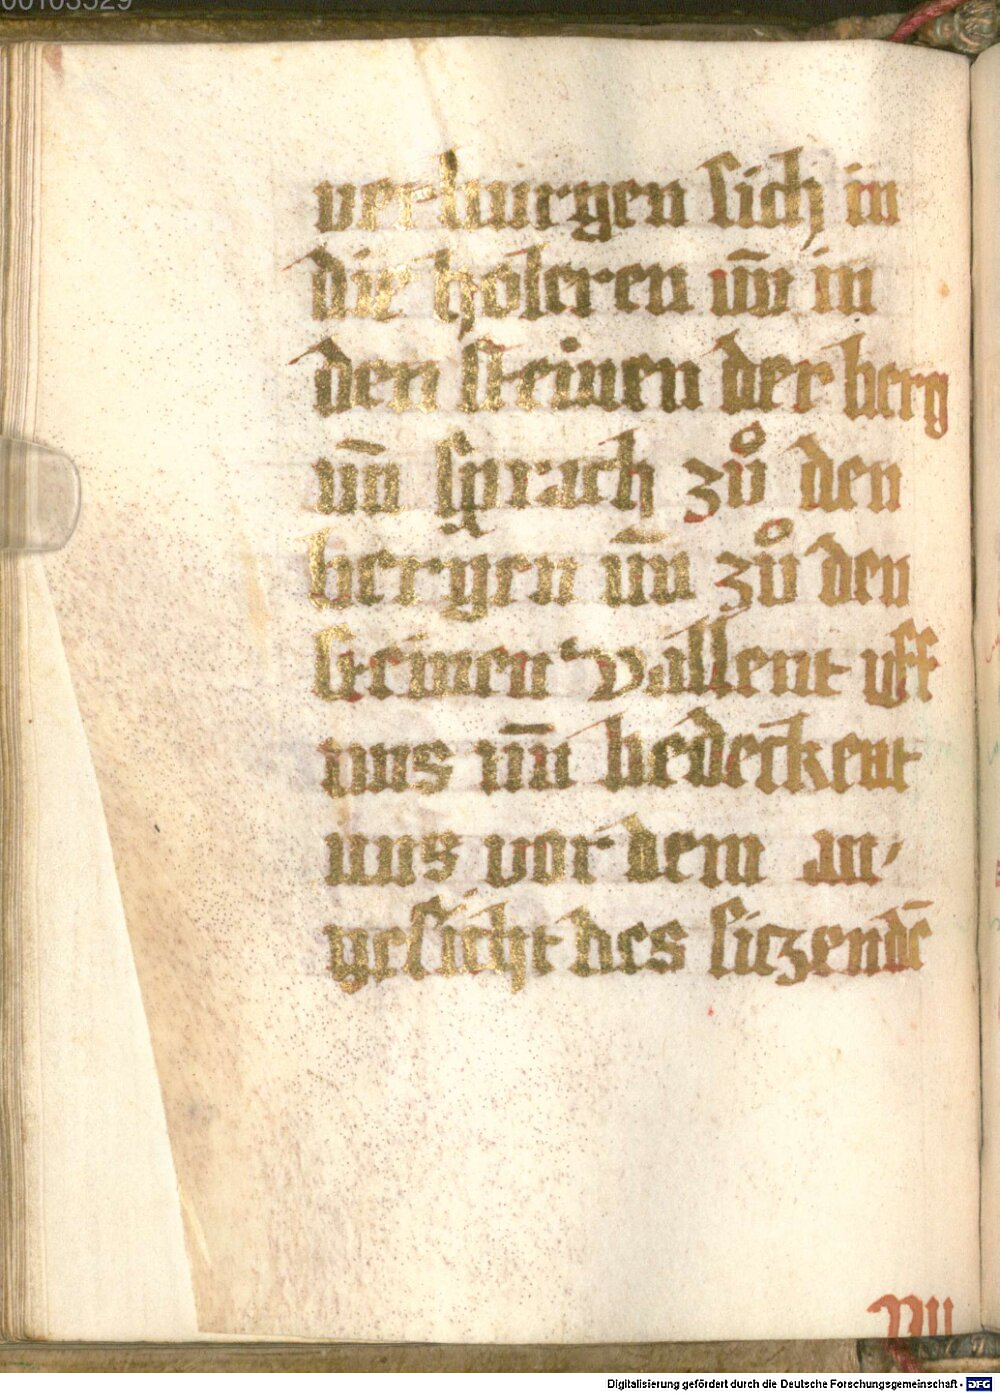 00103529
verburgen sich in
die holeren un̄ in
den steinen der berg
un̄ sprach zů den
bergen un̄ zů den
steinen vallent uff
uns un̄ bedeckent
uns vor dem an⸗
gesicht des siczendē
Digitalisierung gefördert durch die Deutsche Forschungsgemeinschaft - DFG